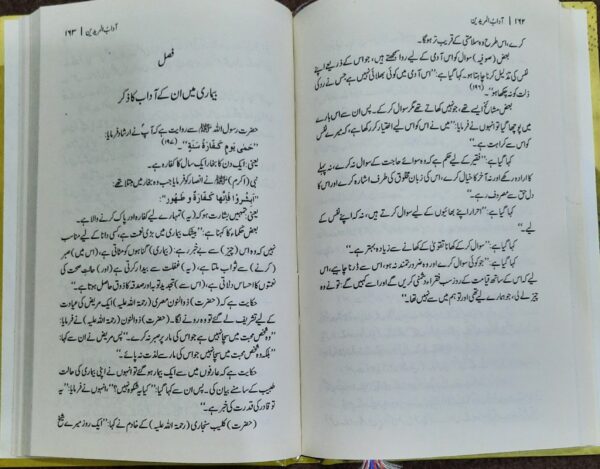 ۱۶۲ | آداب المریدین
کرے، اس طرح وہ سلامتی کے قریب تر ہو گا۔
بعض (صوفیہ) سوال کو اس آدمی کے لیے روا سمجھتے ہیں، جو اس کے ذریعے اپنے
نفس کی تذلیل کرنا چاہتا ہو۔ کہا گیا ہے: "اس آدمی میں کوئی بھلائی نہیں ہے جس نے رد کی
ذلت کو نہ چکھا ہو"۔ (۱۹۶)
بعض مشائخ ایسے تھے، جو نہیں کھاتے تھے مگر سوال کر کے۔ پس ان سے اس بارے
میں پوچھا گیا تو انہوں نے فرمایا: "میں نے اس کو اس لیے اختیار کر رکھا ہے، کہ میرے نفس
کو اس سے کراہت ہے۔"
کہا گیا ہے: "فقیر کے لیے حکم ہے کہ وہ سوائے حاجت کے سوال نہ کرے، نہ پہلے
کا ارادہ رکھے اور نہ آخر کا خیال کرے، اس کی زبان خلوق کی طرف اشارہ کرے اور اس کا
دل حق سے مصروف رہے۔"
کہا گیا ہے: "احرار اپنے بھائیوں کے لیے سوال کرتے ہیں، نہ کہ اپنے نفس کے
لیے۔"
کہا گیا ہے: "سوال کر کے کھانا تقویٰ کے کھانے سے زیادہ بہتر ہے۔"
کہا گیا ہے: "جو کوئی سوال کرے اور وہ ضرورتمند نہ ہو، اس سے ڈرنا چاہیے، اس
لیے کہ اس کے ساتھ قیامت کے روز سب فقراء دشمنی کریں گے اور اسے کہیں گے: تو نے وہ
چیز لے لی، جو ہمارے لیے تھی اور تو ہم میں سے نہیں تھا۔"
آداب المریدین | ۱۶۳
فصل
بیماری میں ان کے آداب کا ذکر
حضرت رسول اللہ ﷺ سے روایت ہے کہ آپ نے ارشاد فرمایا:
"حُمّٰی یَوْمٍ کَفَّارَۃُ سَنَۃٍ"۔ (۱۹۷)
یعنی: ایک دن کا بخار ایک سال کا کفارہ ہے۔
نبی (اکرم) ﷺ نے انصار کو فرمایا جب وہ بخار میں مبتلا تھے:
"اَبْشِرُوْا فَاِنَّھَا کَفَّارَۃٌ وَّ طَھُوْرٌ"۔
یعنی: تمہیں بشارت ہو کہ (یہ) تمہارے لیے کفارہ اور پاک کرنے والا ہے۔
بعض حکماء کا کہنا ہے: "بیشک بیماری میں بڑی نعمت ہے، کسی دانا کے لیے مناسب
نہیں کہ وہ اس (چیز) سے بے خبر رہے: (بیماری) گناہوں کو مٹاتی ہے، اس میں (صبر
کرنے) سے ثواب ملتا ہے، (یہ) غفلت سے بیدار کرتی ہے (اور) حالتِ صحت کی
نعمتوں کا احساس دلاتی ہے، (اس سے) تجدید توبہ اور صدقہ کا ذوق حاصل ہوتا ہے۔"
حکایت ہے کہ (حضرت) ذوالنون مصری (رحمۃ اللہ علیہ) ایک مریض کی عیادت
کے لیے تشریف لے گئے تو وہ رونے لگا۔ (حضرت) ذوالنون (رحمۃ اللہ علیہ) نے فرمایا:
"وہ شخص محبت میں سچا نہیں ہے جو اس کی مار پر صبر نہ کرے۔" پس مریض نے ان سے کہا:
"بلکہ وہ شخص محبت میں سچا نہیں جو اس کی مار سے لذت نہ پائے۔"
حکایت ہے کہ عارفوں میں سے ایک بیمار ہو گئے تو انہوں نے اپنی بیماری کی حالت
طبیب کے سامنے بیان کی۔ پس ان سے کہا گیا: "کیا یہ شکوہ نہیں؟"، انہوں نے فرمایا: "یہ
تو قادر کی قدرت کی خبر ہے۔"
(حضرت) کلیب سنجاری (رحمۃ اللہ علیہ) کے خادم نے کہا: "ایک روز میرے شیخ